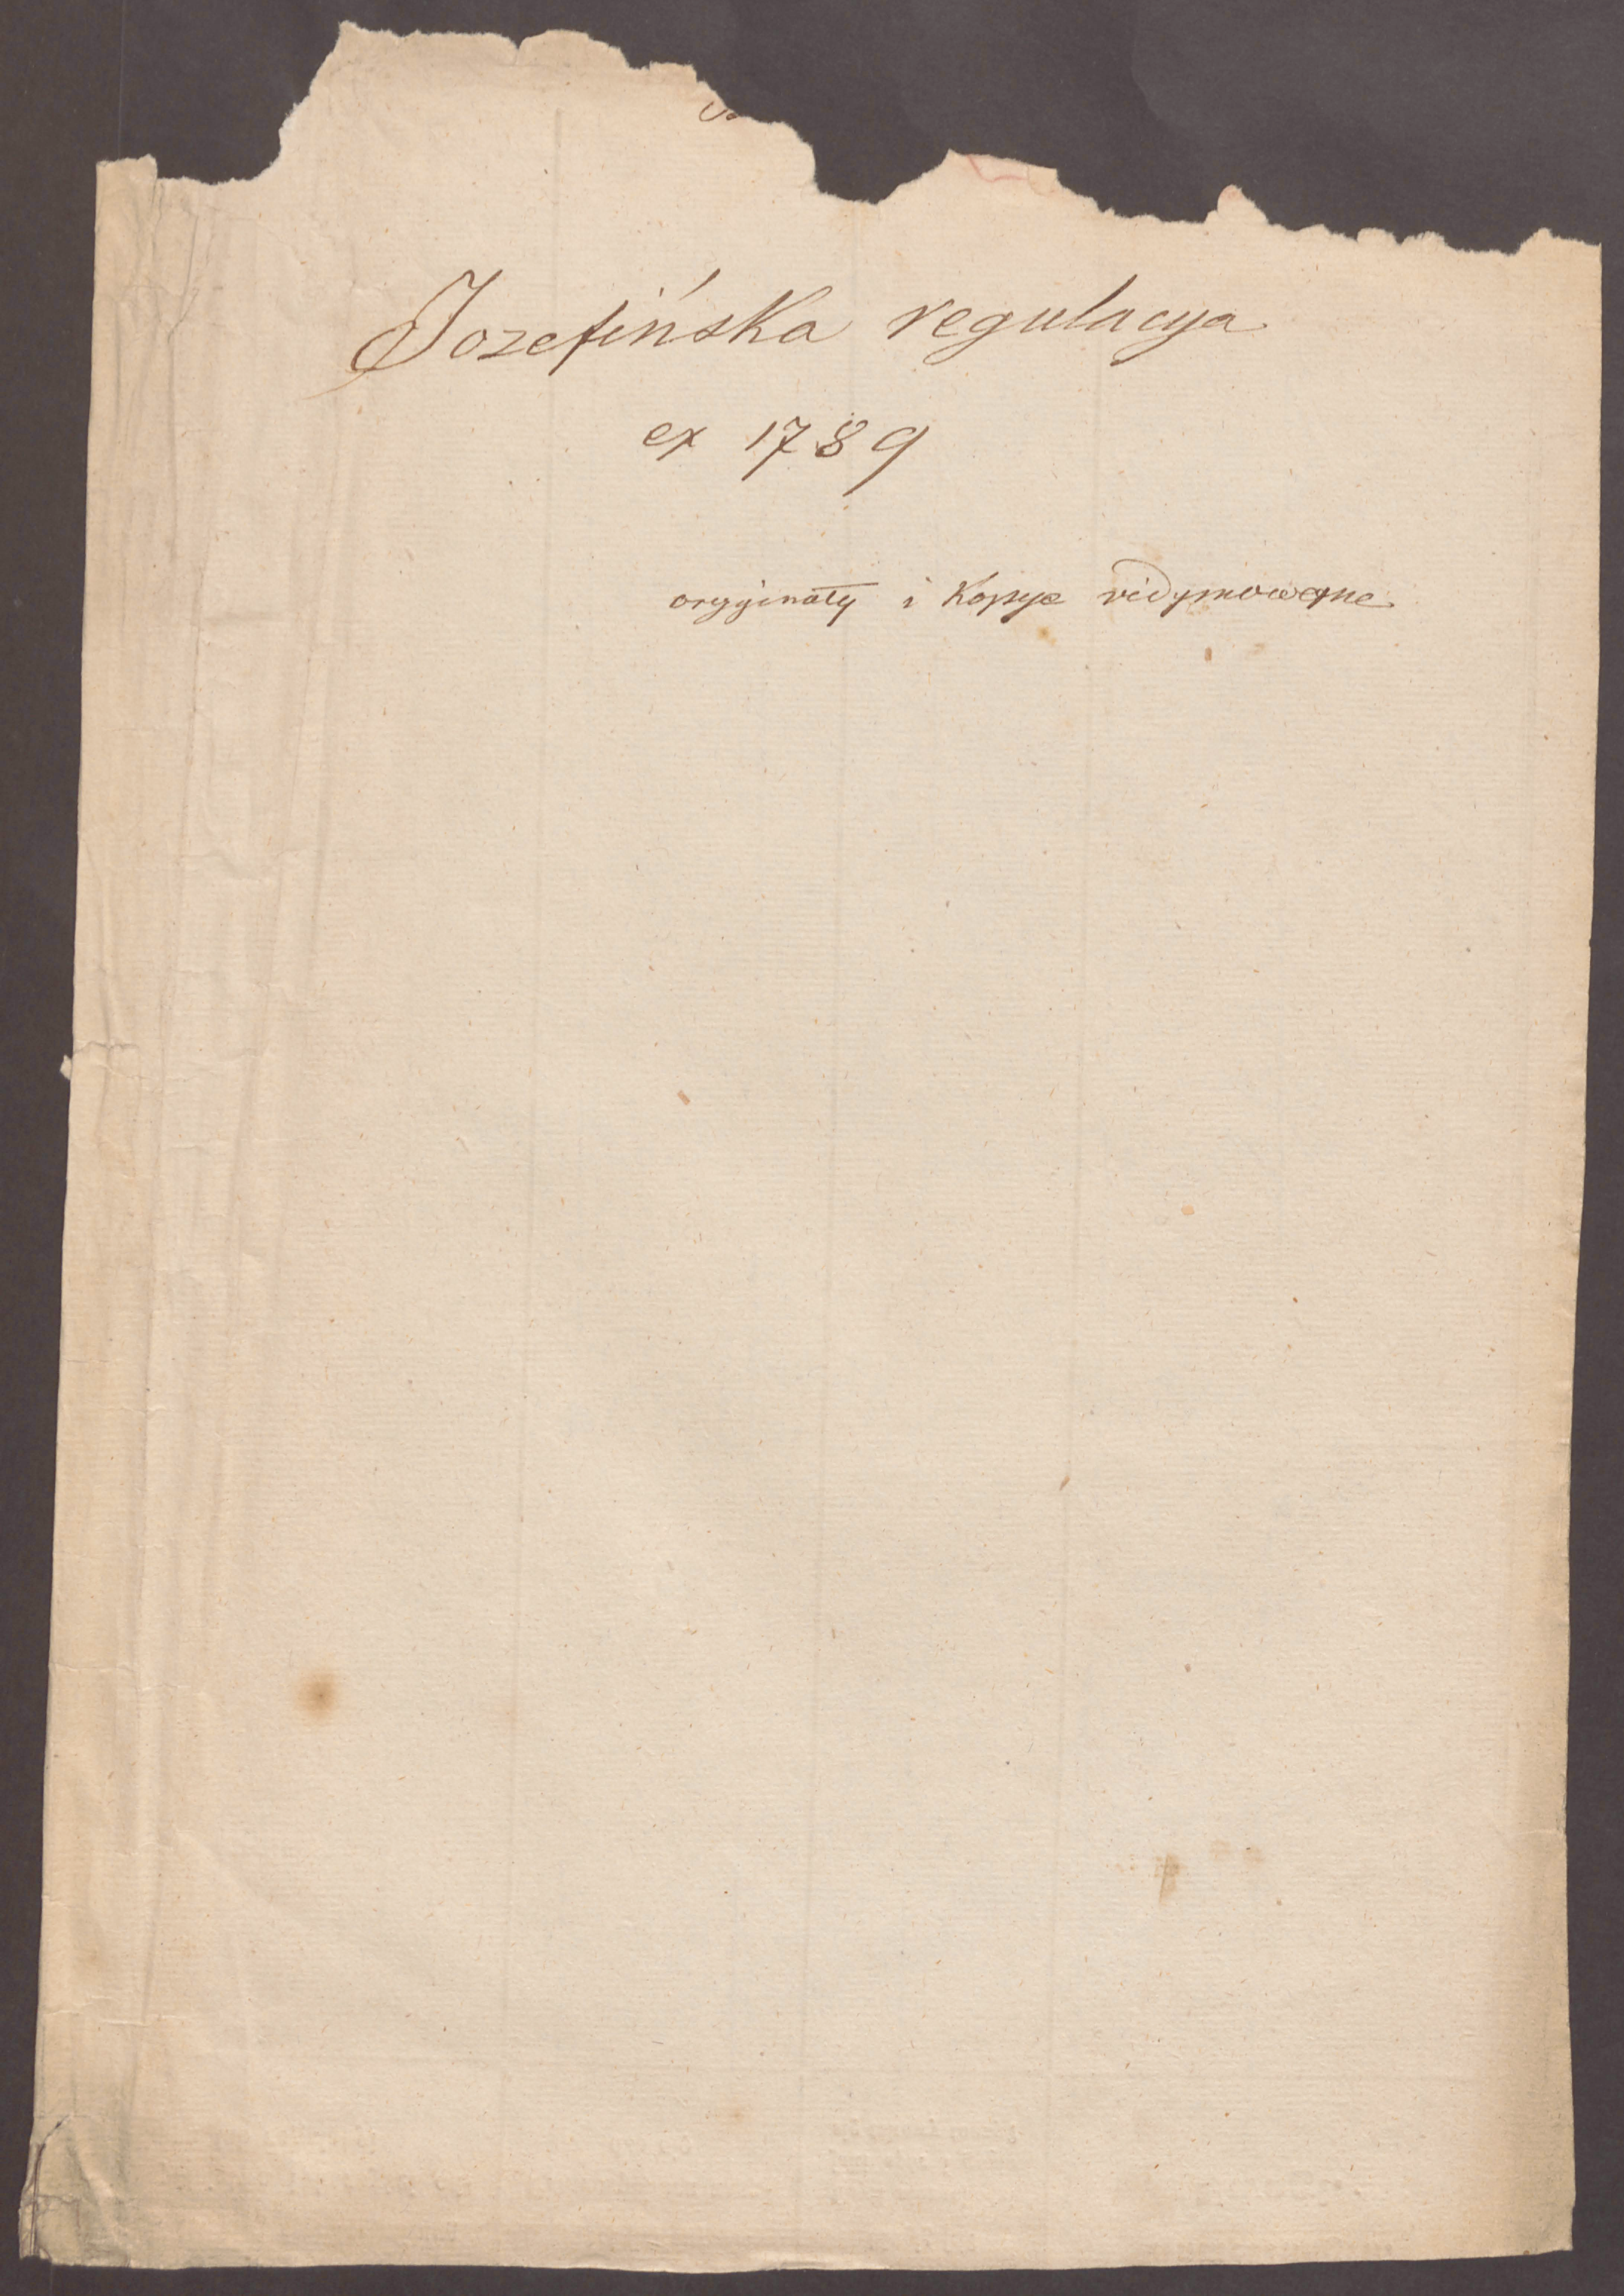 Jozefińska regulacya
ex 1789
oryginały i Kopye vidymowane